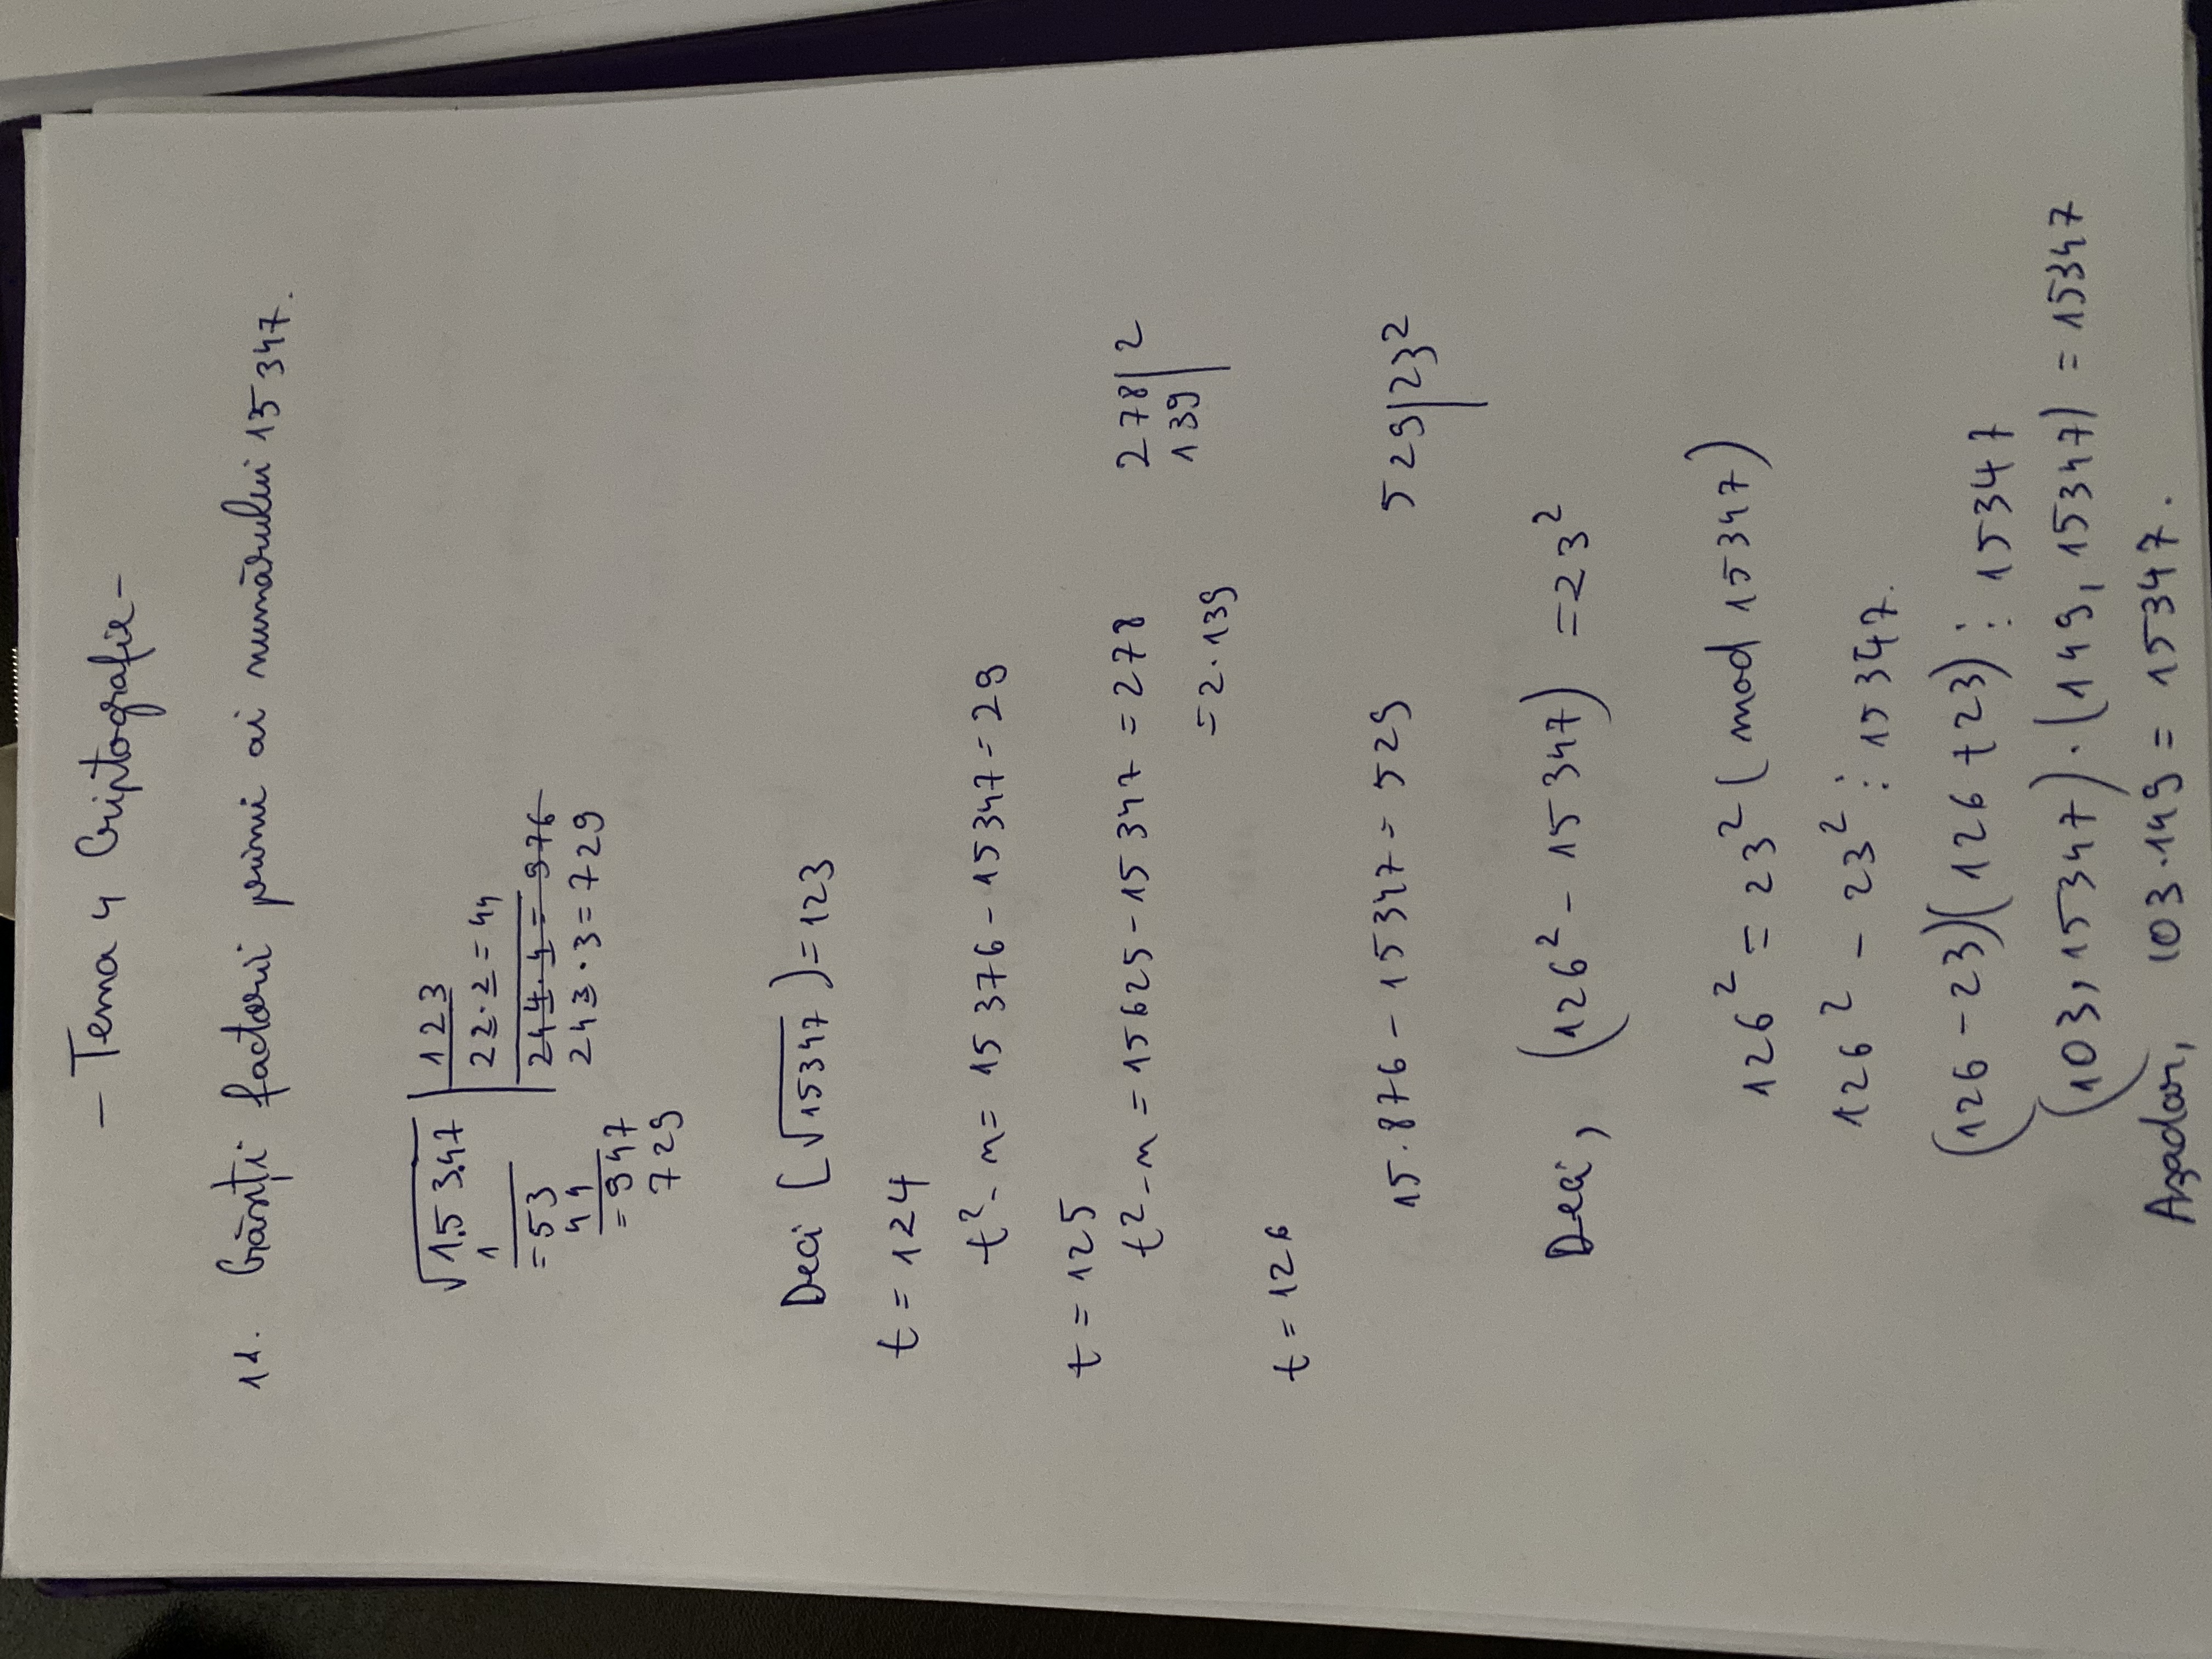 - Tema 4 Criptografie -
11. Găsiți factorii primi ai numărului 15 347.
√1.53.47 | 123
1 | 22·2 = 44
= 53 | 244·4 = 976
44 | 243·3 = 729
= 947
729
Deci [√15347) = 123
t = 124
t² - n = 15 376 - 15 347 = 29
t = 125
t² - n = 15625 - 15 347 = 278 278 | 2
= 2·139 139 |
t = 126
15.876 - 15347 = 529 529 | 23²
Deci, (126² - 15 347) = 23²
126² = 23² (mod 15347)
126² - 23² ⋮ 15347.
(126 - 23)(126 + 23) ⋮ 15347
(103, 15347) · (149, 15347) = 15347
Așadar, 103·149 = 15347.